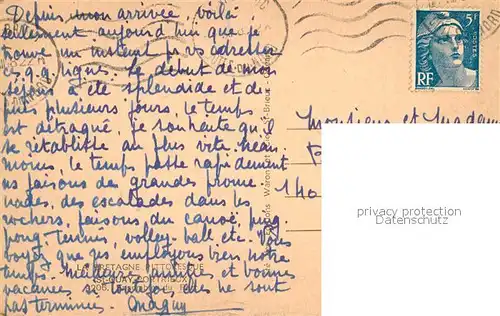 Depuis mon arrivée voilà
seulement aujourd'hui que je
trouve un instant pr vs adresser
ces qq lignes. Le début de mon
séjour a été splendide et de
puis plusieurs jours, le temps
est détraqué, je souhaite qu'il
se rétablitte au plus vite. Néan
moins, le temps passe rapidement
ns faisons des grandes prome
nades, des escalades dans les
rochers, faisons du canoë, ping
pong, tennis, volley-ball, etc. Vous
voyez que ns employons bien notre
temps. Meilleures amitiés et bonnes
vacances si toutefois, elles ne sont
pas terminées. Maguy
5F
POSTES
RF
Monsieur et Madame
140
privacy protection
Datenschutz
LA BRETAGNE PITTORESQUE
ST-QUAY-PORTRIEUX